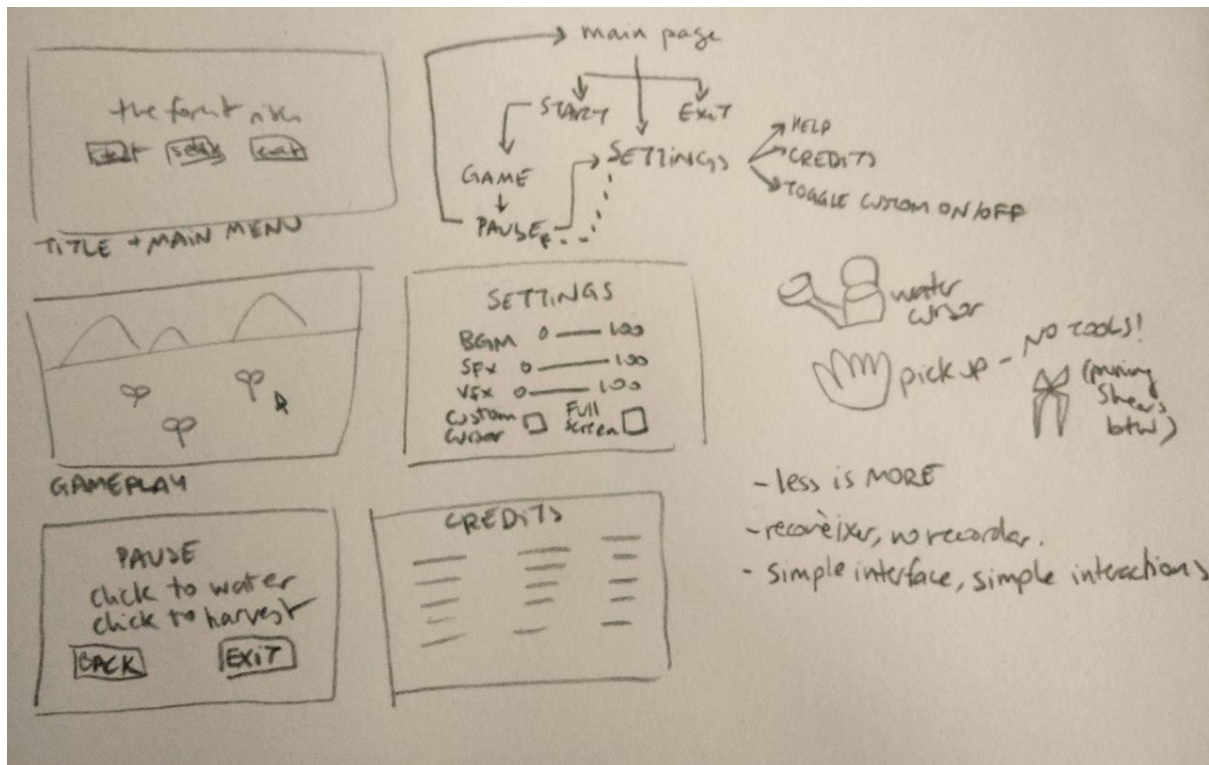 the forest rises
start
exit
TITLE + MAIN MENU
main page
START
EXIT
SETTINGS
GAME
PAUSE
HELP
CREDITS
TOGGLE CUSTOM ON/OFF
GAMEPLAY
SETTINGS
BGM 0 100
SFX 0 100
VFX 0 100
custom cursor
Full screen
water
cursor
pick up - NO TOOLS!
(pruning
shears
btw)
PAUSE
click to water
click to harvest
BACK
EXIT
CREDITS
- less is MORE
no recordar.
- simple interface, simple interactions